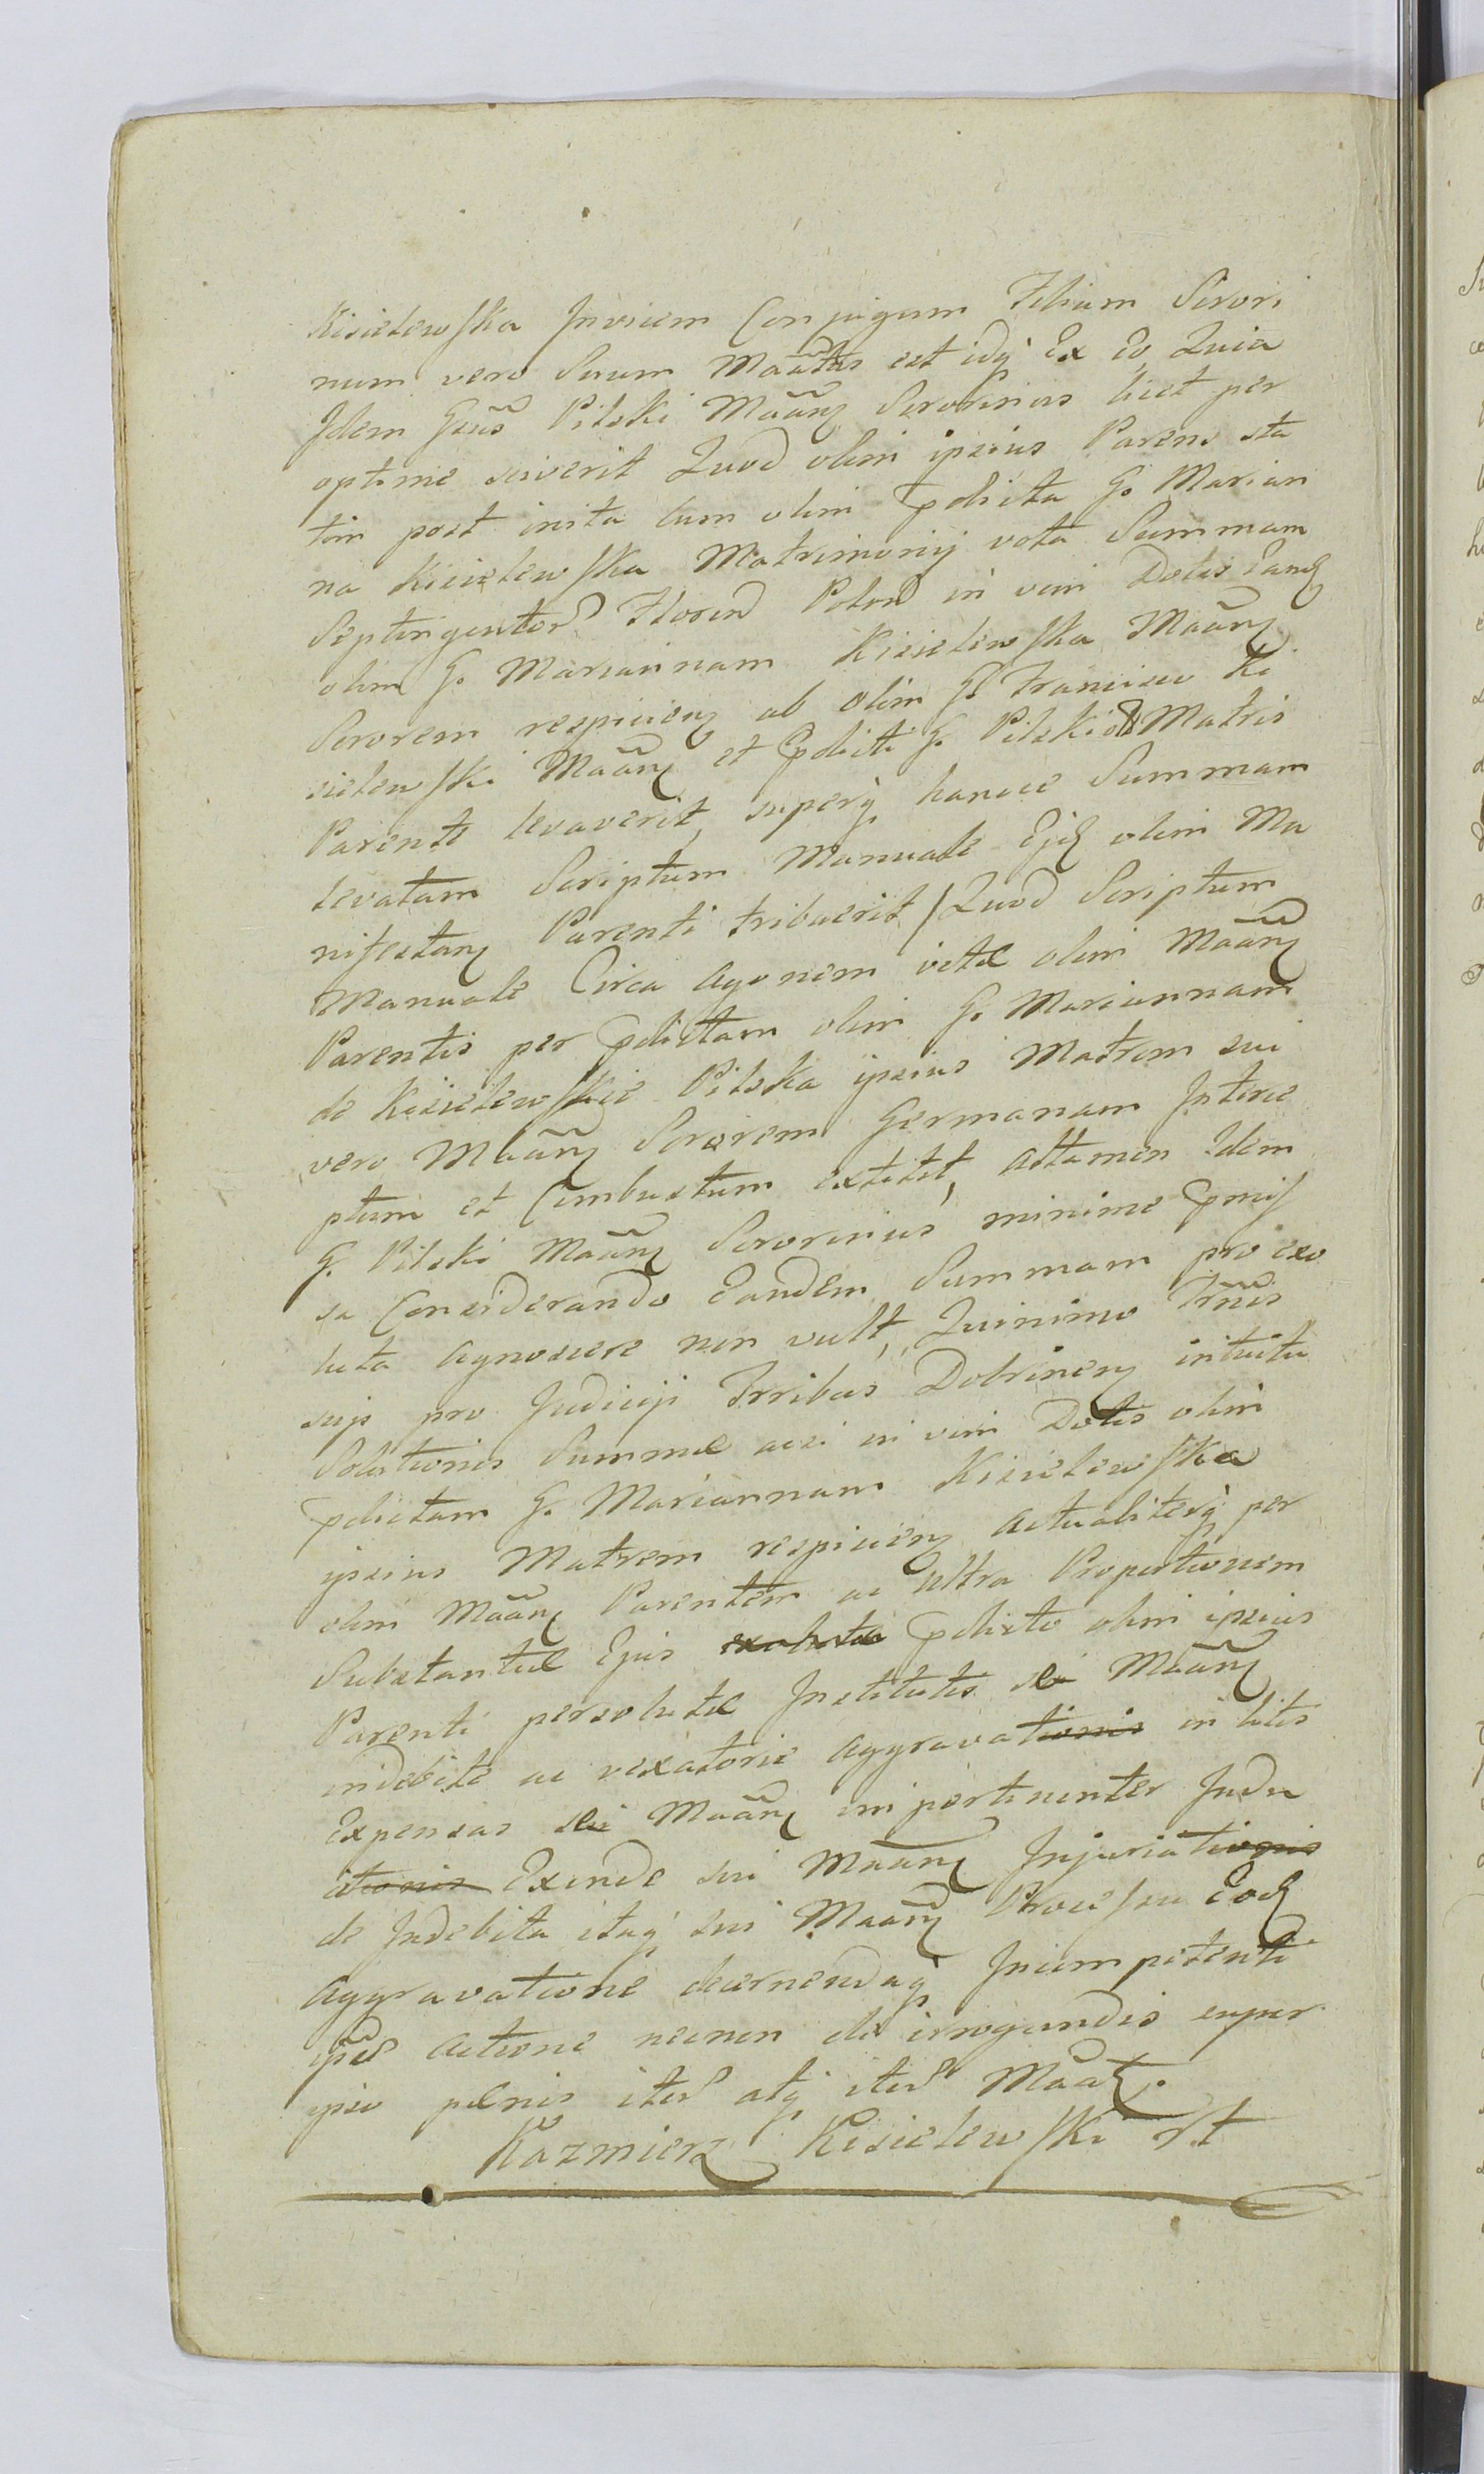 Kisielewska Invicem Conjugum Filium Sorori
num vero Suum Maātus est idq̃ Ex Eo Quia
Idem Gsūs Pilski Māāng Sororinus licet per
optime sciverit Quod olim ipsius Parens sta
tim post inita cum olim pdicta G. Marian
na Kisielewska Matrimonij vota Summam
Septingentor Floren Polon in vim Dotis Eand
olim G. Mariannam Kisielewska Māāng
Sororem respicieng ab olim G. Francisco Ki
sielewski Māāng et pdicti G. Pilski Matris
Parente levaverit, superq̃ hancce Summam
levatam Scriptum Manuale Ejd olim Ma
nifestang Parenti tribuerit / Quod Scriptum
Manuale Circa agonem vitæ olim Māāng
Parentis per pdictam olim G. Mariannam
de Kisielewskie Pilska ipsius Matrem sui
vero Māāng Sororem Germanam Interce
ptum et Combustum extitit, attamen Idem
G. Pilski Māāng Sororinus minime pmis
sa Considerando Eandem Summam pro exo
luta agnoscere non vult, Quinimo Trm̃is
suis pro Judicij Trribus Dobrineng intuitu
Solutionis Summæ acsi in vim Dotis olim
pdictam G. Mariannam Kisielewska
ipsius Matrem respicieng actualiterq̃ per
olim Māāng Parentem ac ultra Proportionem
Substantiæ Ejus exolutæ pdicto olim ipsius
Parenti persolutæ Institutis se Māāng
indebite ac vexatorie aggravationis in litis
Expensas sui Māāng impertinenter Indu
ctionis Exinde sui Māāng Injuriationis
de Indebita itaq̃ sui Māāng Processu Eod
aggravatione decernendaq̃ Incompetenti
ipso actione necnon de irrogandis super
ipso pænis iter atq̃ iter Māāt.
Kazmierz Kisielewski